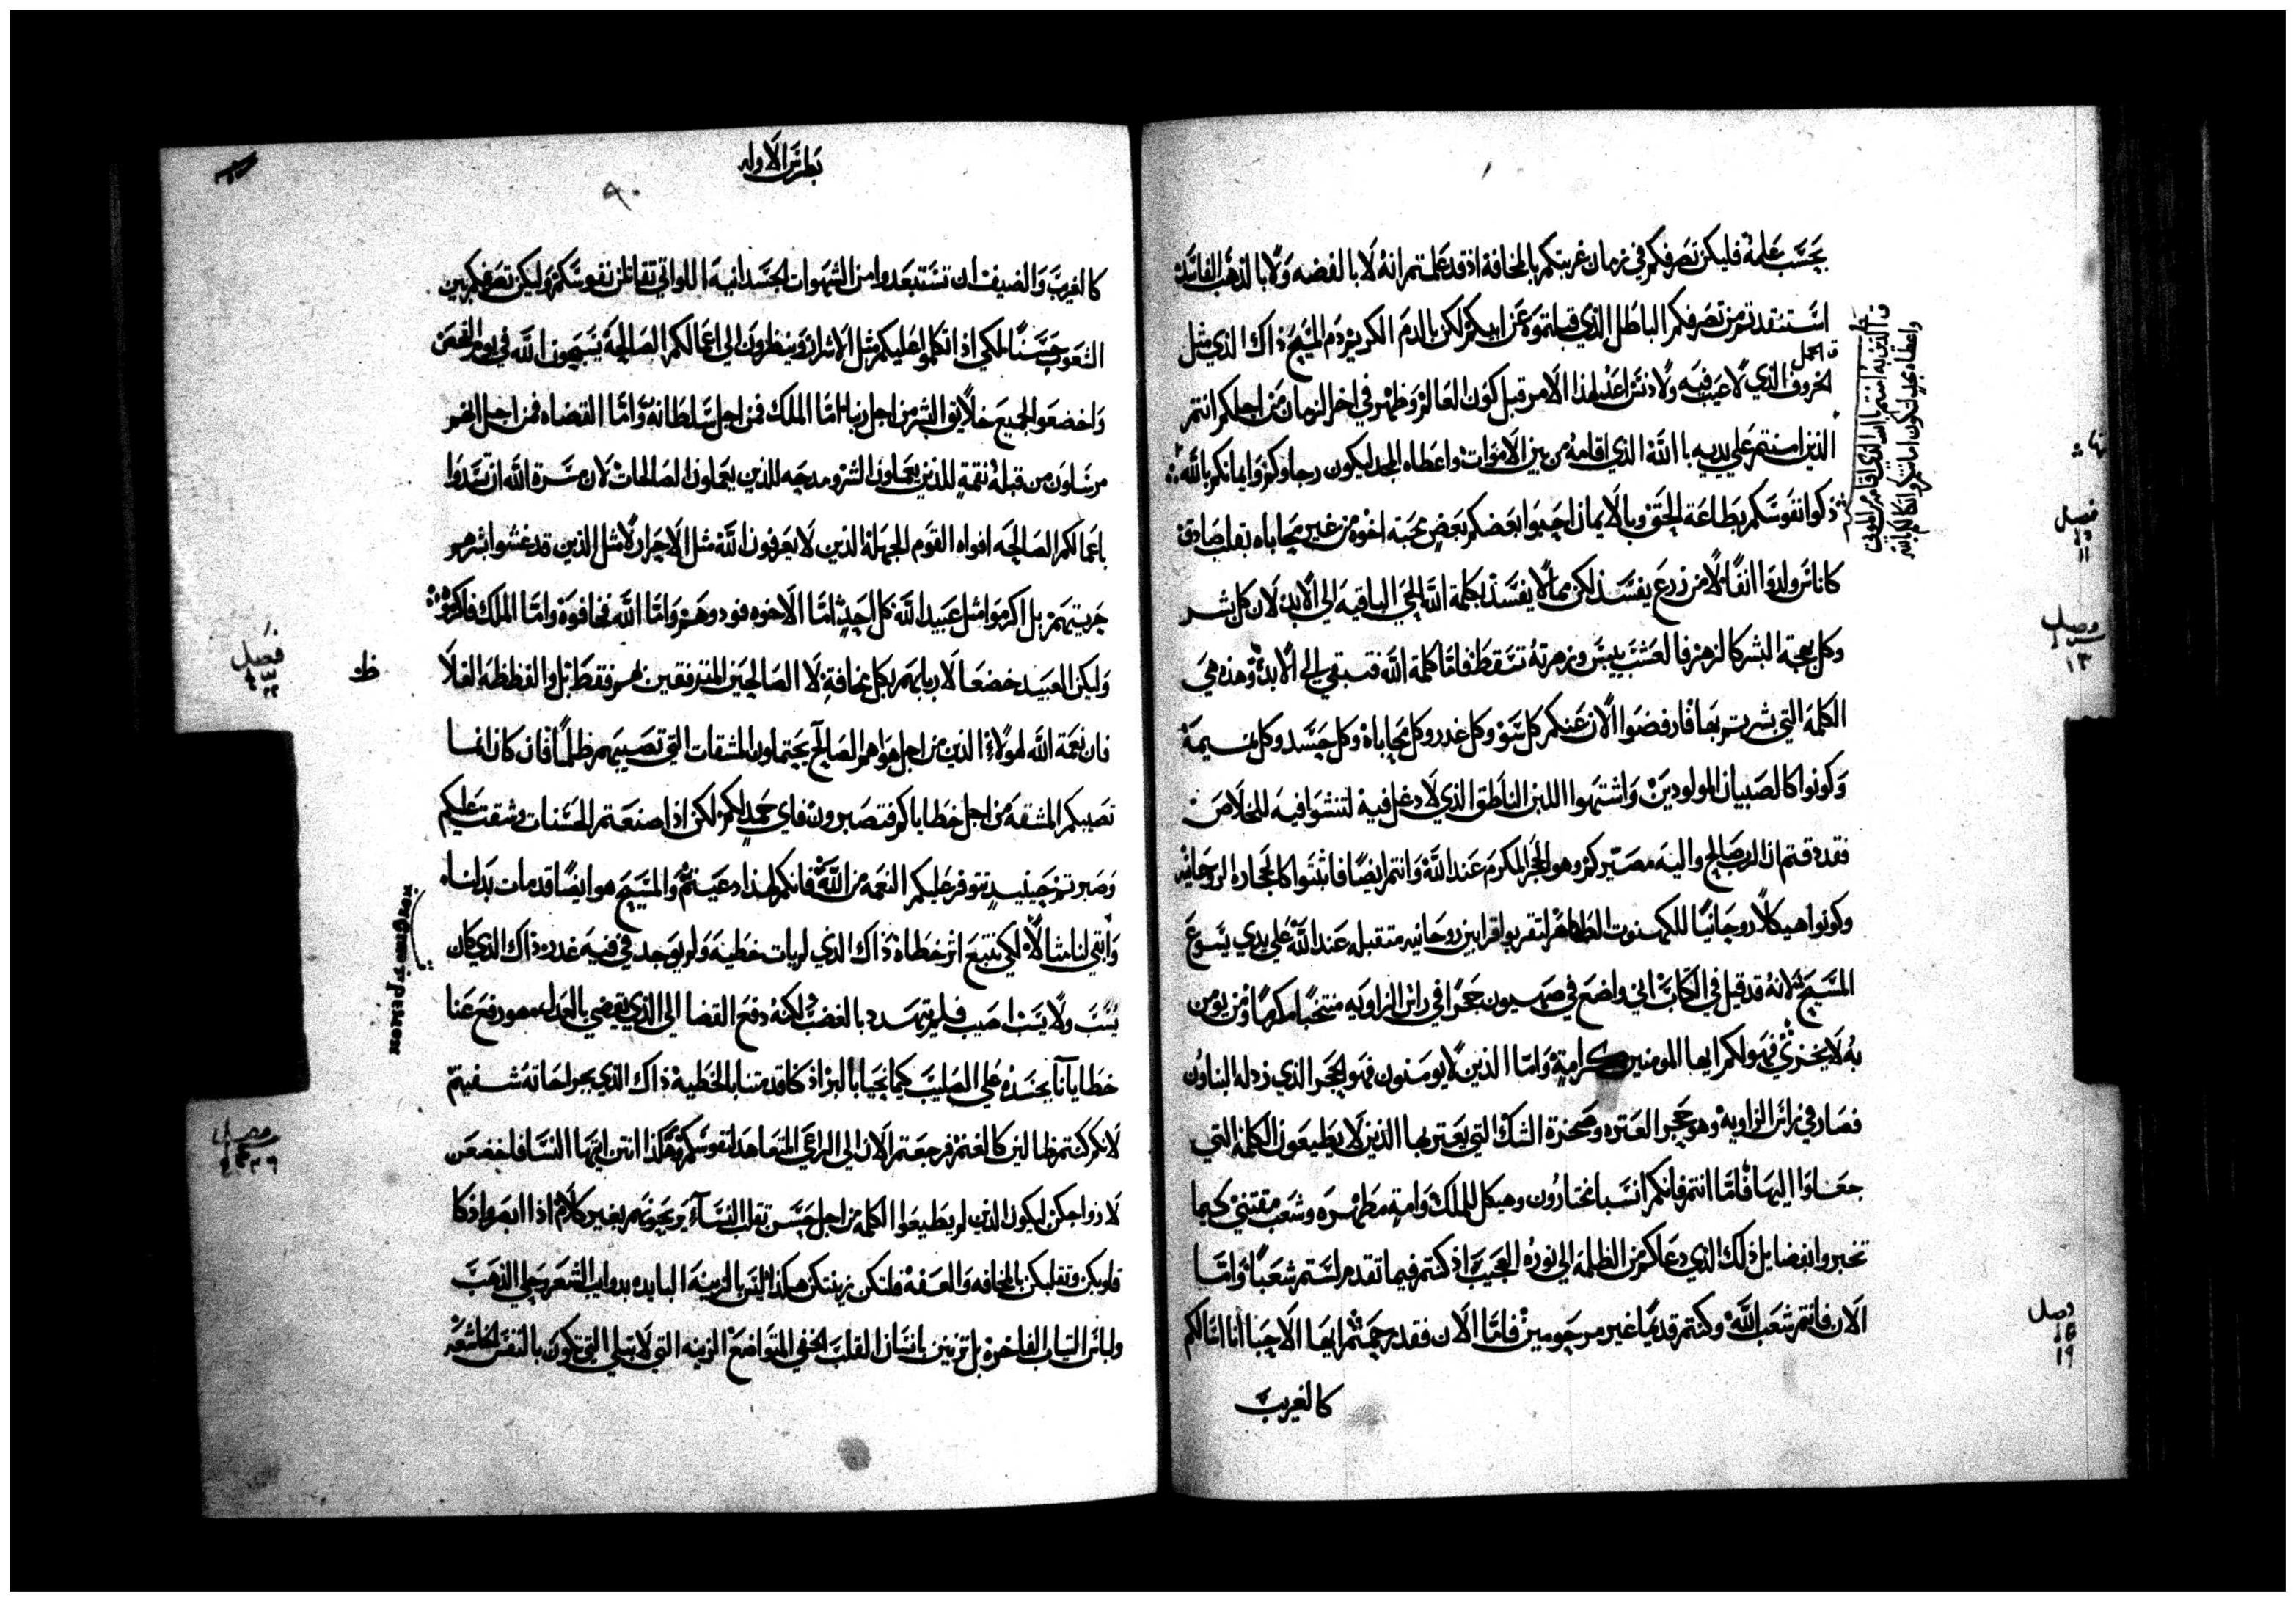 بحسب عمله فليكن تصرفكم في زمان غربتكم بالمخافة اذ قد علمتم انه لا بالفضه ولا بالذهب الفاسد
استنقدتم من تصرفكم الباطل الذي قبلتموه عن ابيكم لكن بالدم الكريم دم المسيح ذاك الذي مثل
الحمل
الخروف الذي لا عيب فيه ولا دنس اعد لهذا الامر قبل كون العالم وظهر في اخر الزمان من اجلكم انتم
الذين امنتم علي يديه بالله الذي اقامه من بين الاموات واعطاه المجد ليكون رجاوكم وايمانكم بالله
ذكوا نفوسكم بطاعة الحق وبالايمان احبوا بعضكم بعض محبة اخوه من غير محاباه بقلب صادق
كاناس ولدوا انفا لا من زرع يفسد لكن مما لا يفسد بكلمة الله الحي الباقيه الي الابد لان كل بشر
وكل بهجة البشر كالزهر فالعشب ييبس وزهرته تسقط فاما كلمة الله فتبقي الي الابد وهذه هي
الكلمة التي بشرتم بها فارفضوا الان عنكم كل سو وكل غدر وكل محاباة وكل حسد وكل نميمة
وكونوا كالصبيان المولودين واشتهوا اللبن الناطق الذي لا دغل فيه لتنشوا فيه للخلاص
فقد دقتم ان الرب صالح واليه مصيركم وهو الحجر المكرم عند الله وانتم ايضا فابتنوا كالحجاره الروحانيه
وكونوا هيكلا روحانيا للكهنوت الطاهر لتقربوا قرابين روحانيه متقبله عند الله علي يدي يسوع
المسيح لانه قد قيل في الكتاب اني واضع في صهيون حجرا في راس الزاويه منتخبا مكرما ومن يومن
به لا يخزي فهو لكم ايها المومنين كرامة واما الذين لا يومنون فهو الحجر الذي رذله البناون
فصار في راس الزاويه وهو حجر العثره وصخرة الشك التي يعتر بها الذين لا يطيعون الكلمة التي
جعلوا اليها فاما انتم فانكم انسبا مختارون وهيكل للملك وامة مطهره وشعب مقتني كيما
تخبروا بفضايل ذلك الذي دعاكم من الظلمة الي نوره العجيب اذ كنتم فيما تقدم لستم شعبا واما
الان فانتم شعب الله وكنتم قديما غير مرحومين فاما الان فقد رحمتم ايها الاحبا انا اسالكم
كالغريب
فصل
١١
وصل
١٣
وصل
١٩
بطرس الاوله
٩٠
كالغريب والضيف ان تستبعدوا من الشهوات الجسدانيه اللواتي تقاتلن نفوسكم وليكن تصرفكم بين
الشعوب حسنا لكي اذا تكلموا عليكم مثل الاشرار وينظرون الي اعمالكم الصالحة يسبحون الله في يوم الفحص
واخضعوا لجميع خلايق البشر من اجل ربنا اما الملك فمن اجل سلطانه واما القضاه فمن اجل انهم
مرسلون من قبله نقمة للذين يعملون الشر ومدحه للذين يعملون الصالحات لان مسرة الله ان تسدوا
باعمالكم الصالحه افواه القوم الجهلة الذين لا يعرفون الله مثل الاحرار لا مثل الذين قد غشوا بشرهم
حريتهم بل اكرموا مثل عبيد الله كل احد اما الاخوه فودوهم واما الله فخافوه واما الملك فاكرموه
وليكن العبيد خضعا لاربابهم بكل مخافة لا الصالحين المترفقين بهم فقط بل والفظظة الغلا
فان نعمة الله لهولاء الذين من اجل هواهم الصالح يحتملون المشقات التي تصيبهم ظلما فان كان انما
تصيبكم المشقه من اجل خطاياكم فتصبرون فاي حمد لكم لكن اذا صنعتم الحسنات وشقت عليكم
وصبرتم حينيد تتوفر عليكم النعمه من الله فانكم لهذا دعيتم والمسيح هو ايضا قد مات بدلنا
وابقي لنا مثالا لكي نتبع اثر خطاه ذاك الذي لم يات خطيه ولم يوجد في فيه غدر ذاك الذي كان
يسب ولا يسب اصيب فلم يتهدد بالغضب لكنه دفع القضا الي الذي يقضي بالعدل هو رفع عنا
خطايانا بجسده علي الصليب كيما نحيا بالبر اذ كنا قد متنا بالخطيه ذاك الذي بجراحاته شفيتم
لانكم كنتم ضالين كالغنم فرجعتم الان الي الراعي المتعاهد لنفوسكم هكذا انتن ايتها النسا فاخضعن
لازواجكن ليكون الذين لم يطيعوا الكلمه من اجل حسن تقلب النساء يربحونهم بغير كلام اذا ابصروا ذكا
قلوبكن وتقلبكن بالمخافه والعفه فلتكن زينتكن هكذا ليس بالزينه البايده بدوايب الشعر وحلي الذهب
ولباس التياب الفاخرة بل تزينن بانسان القلب الخفي المتواضع الزينه التي لا تبلي التي تكون بالنفس الخاشعه
فصل
وصل